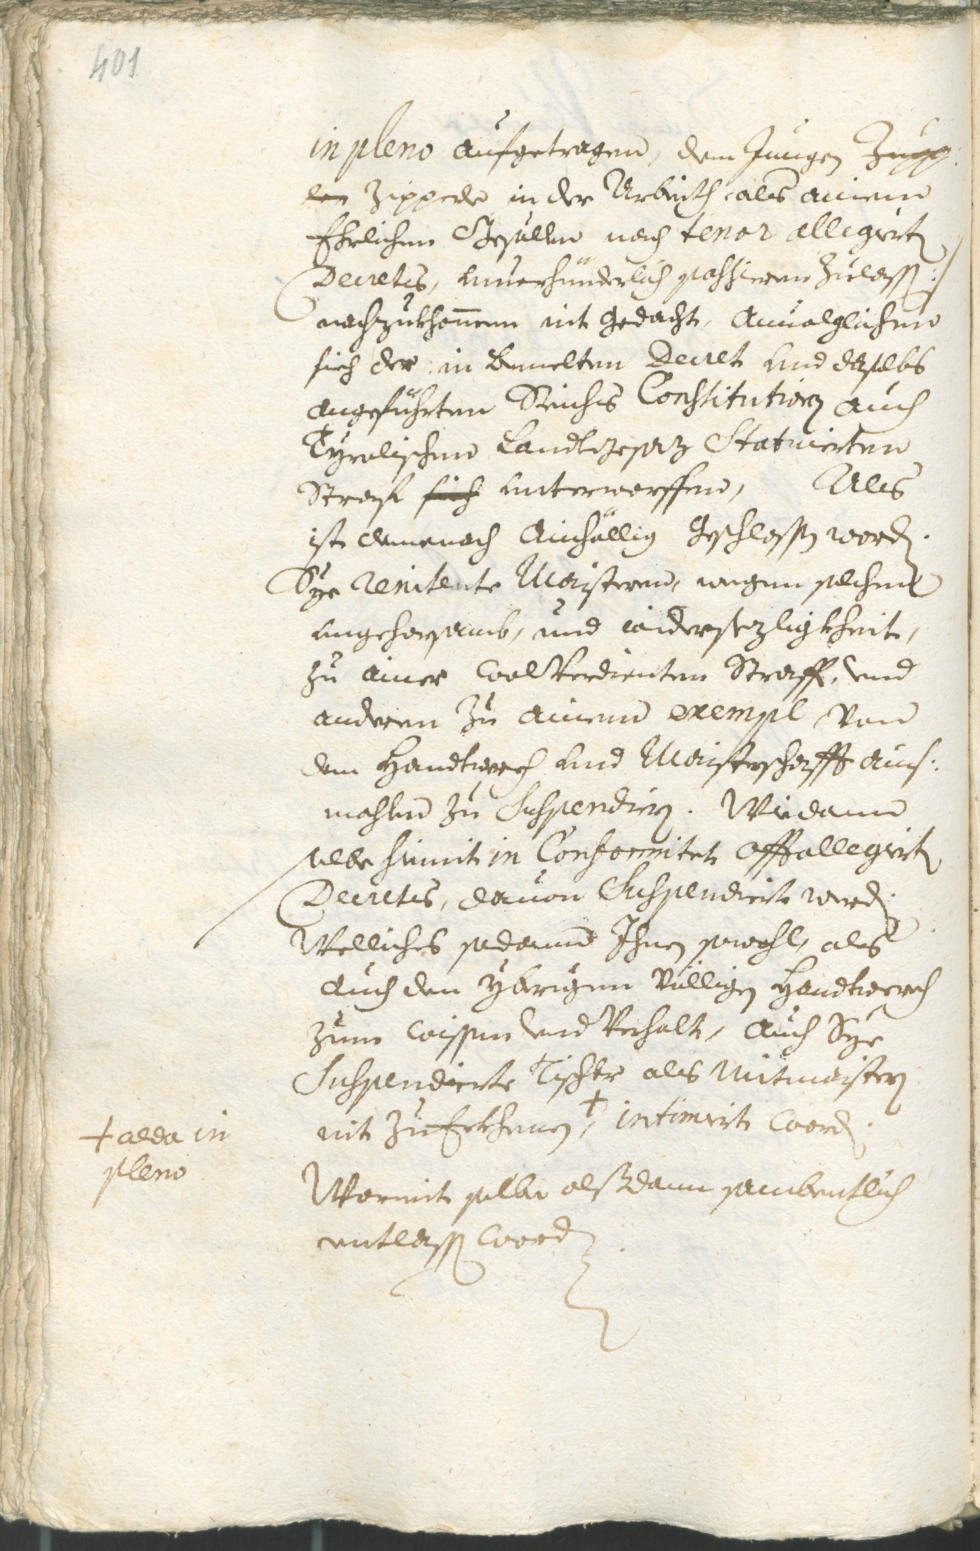 401
in pleno aufgetragen, dem Jungen Zupp
len Zipperle in der Arbeith als ainem
Ehrlichen Gesellen nach tenor allegirtn
Decretis, unuerhinderlich passieren zulassen :/
nachzukhomen nit gedacht,
sich der in bemelten Decret und daselbs
angeführten Reichs Constitution auch
Tyrolischen Landtsgesaz Statuierten
Straff sich unterworffen, Als
ist demenach Ainhällig geschlossn wordn.
Sye renitente Maistern, wegen solchen
ungehorsamb, und widersezligkheit,
zu ainer woluerdienten Straff, und
anderen zu ainem exempl von
dem Handtwerch und Maisterschafft auf:
mahlen zu Suspendirn. Wiedann
selbe hiemit in Conformitet offtallegirtn
Decretis, dauon Suspendirt werdn.
Welliches sodann Ihnen sowohl, als
auch den ybrigen völligen Handtwerch
zum wissen und Verhalt, auch Sye
Suspendierte Tischler als Mitmaistern
nit zu Erkhenen, + intimirt wordn.
+ alda in
pleno
Wormit selbe alßdann sambentlich
entlassn wordn.